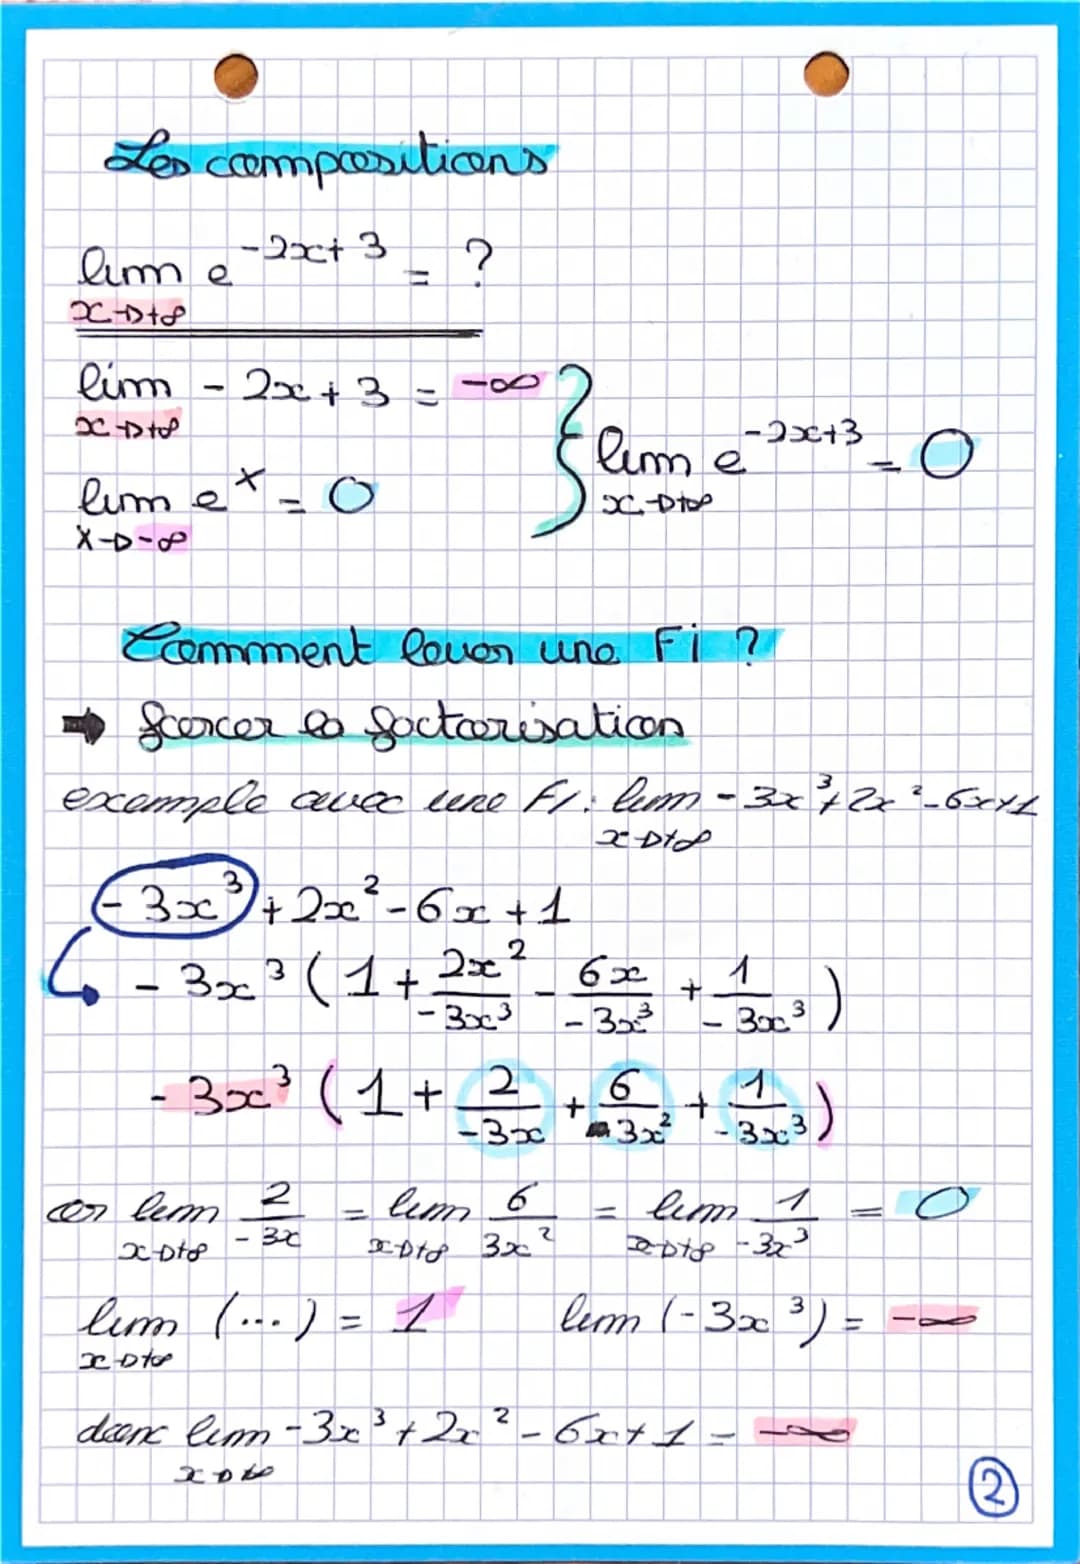 Les compositions
lim e^(-2x+3) = ?
x→+∞
lim -2x+3 = -∞
x→+∞
lim e^X = 0
X→-∞
lim e^(-2x+3) = 0
x→+∞
Comment lever une Fi ?
➡ forcer la factorisation
exemple avec une FI : lim -3x³+2x²-6x+1
x→+∞
-3x³+2x²-6x+1
-3x³(1+2x²/-3x³ - 6x/-3x³ + 1/-3x³)
-3x³(1+2/-3x + 6/3x² + 1/-3x³)
or lim 2/-3x = lim 6/3x² = lim 1/-3x³ = 0
x→+∞ x→+∞ x→+∞
lim (...) = 1 lim (-3x³) = -∞
x→+∞
donc lim -3x³+2x²-6x+1 = -∞
x→+∞
2